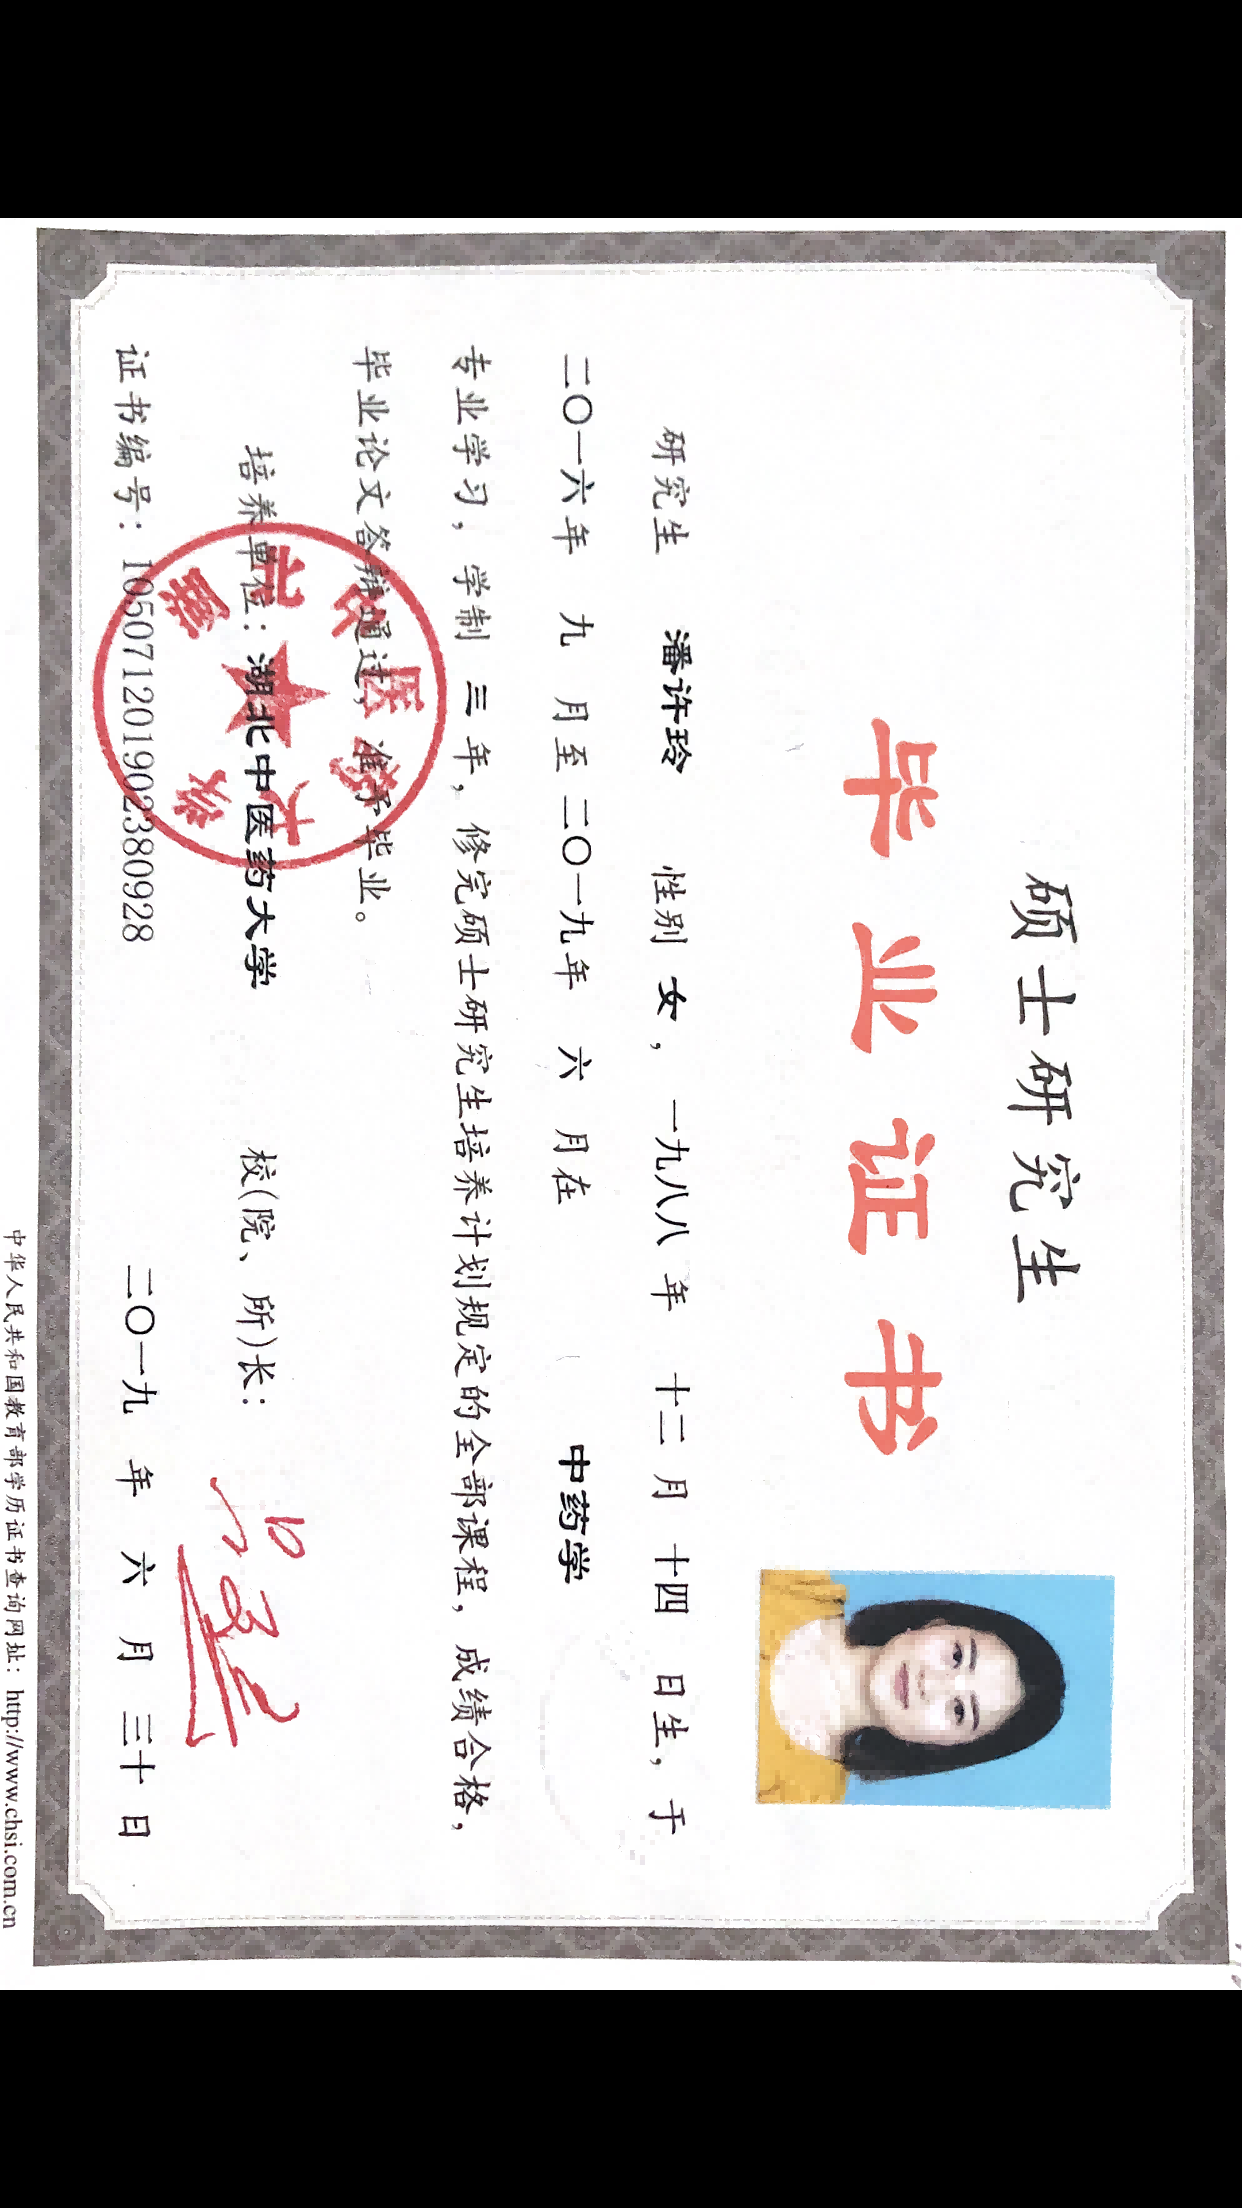 硕士研究生
毕业证书
研究生 潘许玲 性别 女， 一九八八 年 十二 月 十四 日生，于
二〇一六年 九 月至 二〇一九年 六 月在 中药学
专业学习，学制 三 年，修完硕士研究生培养计划规定的全部课程，成绩合格，
毕业论文答辩通过，准予毕业。
培养单位：湖北中医药大学 校(院、所)长：
证书编号：105071201902380928 二〇一九 年 六 月 三十 日
湖北中医药大学
中华人民共和国教育部学历证书查询网址：http://www.chsi.com.cn